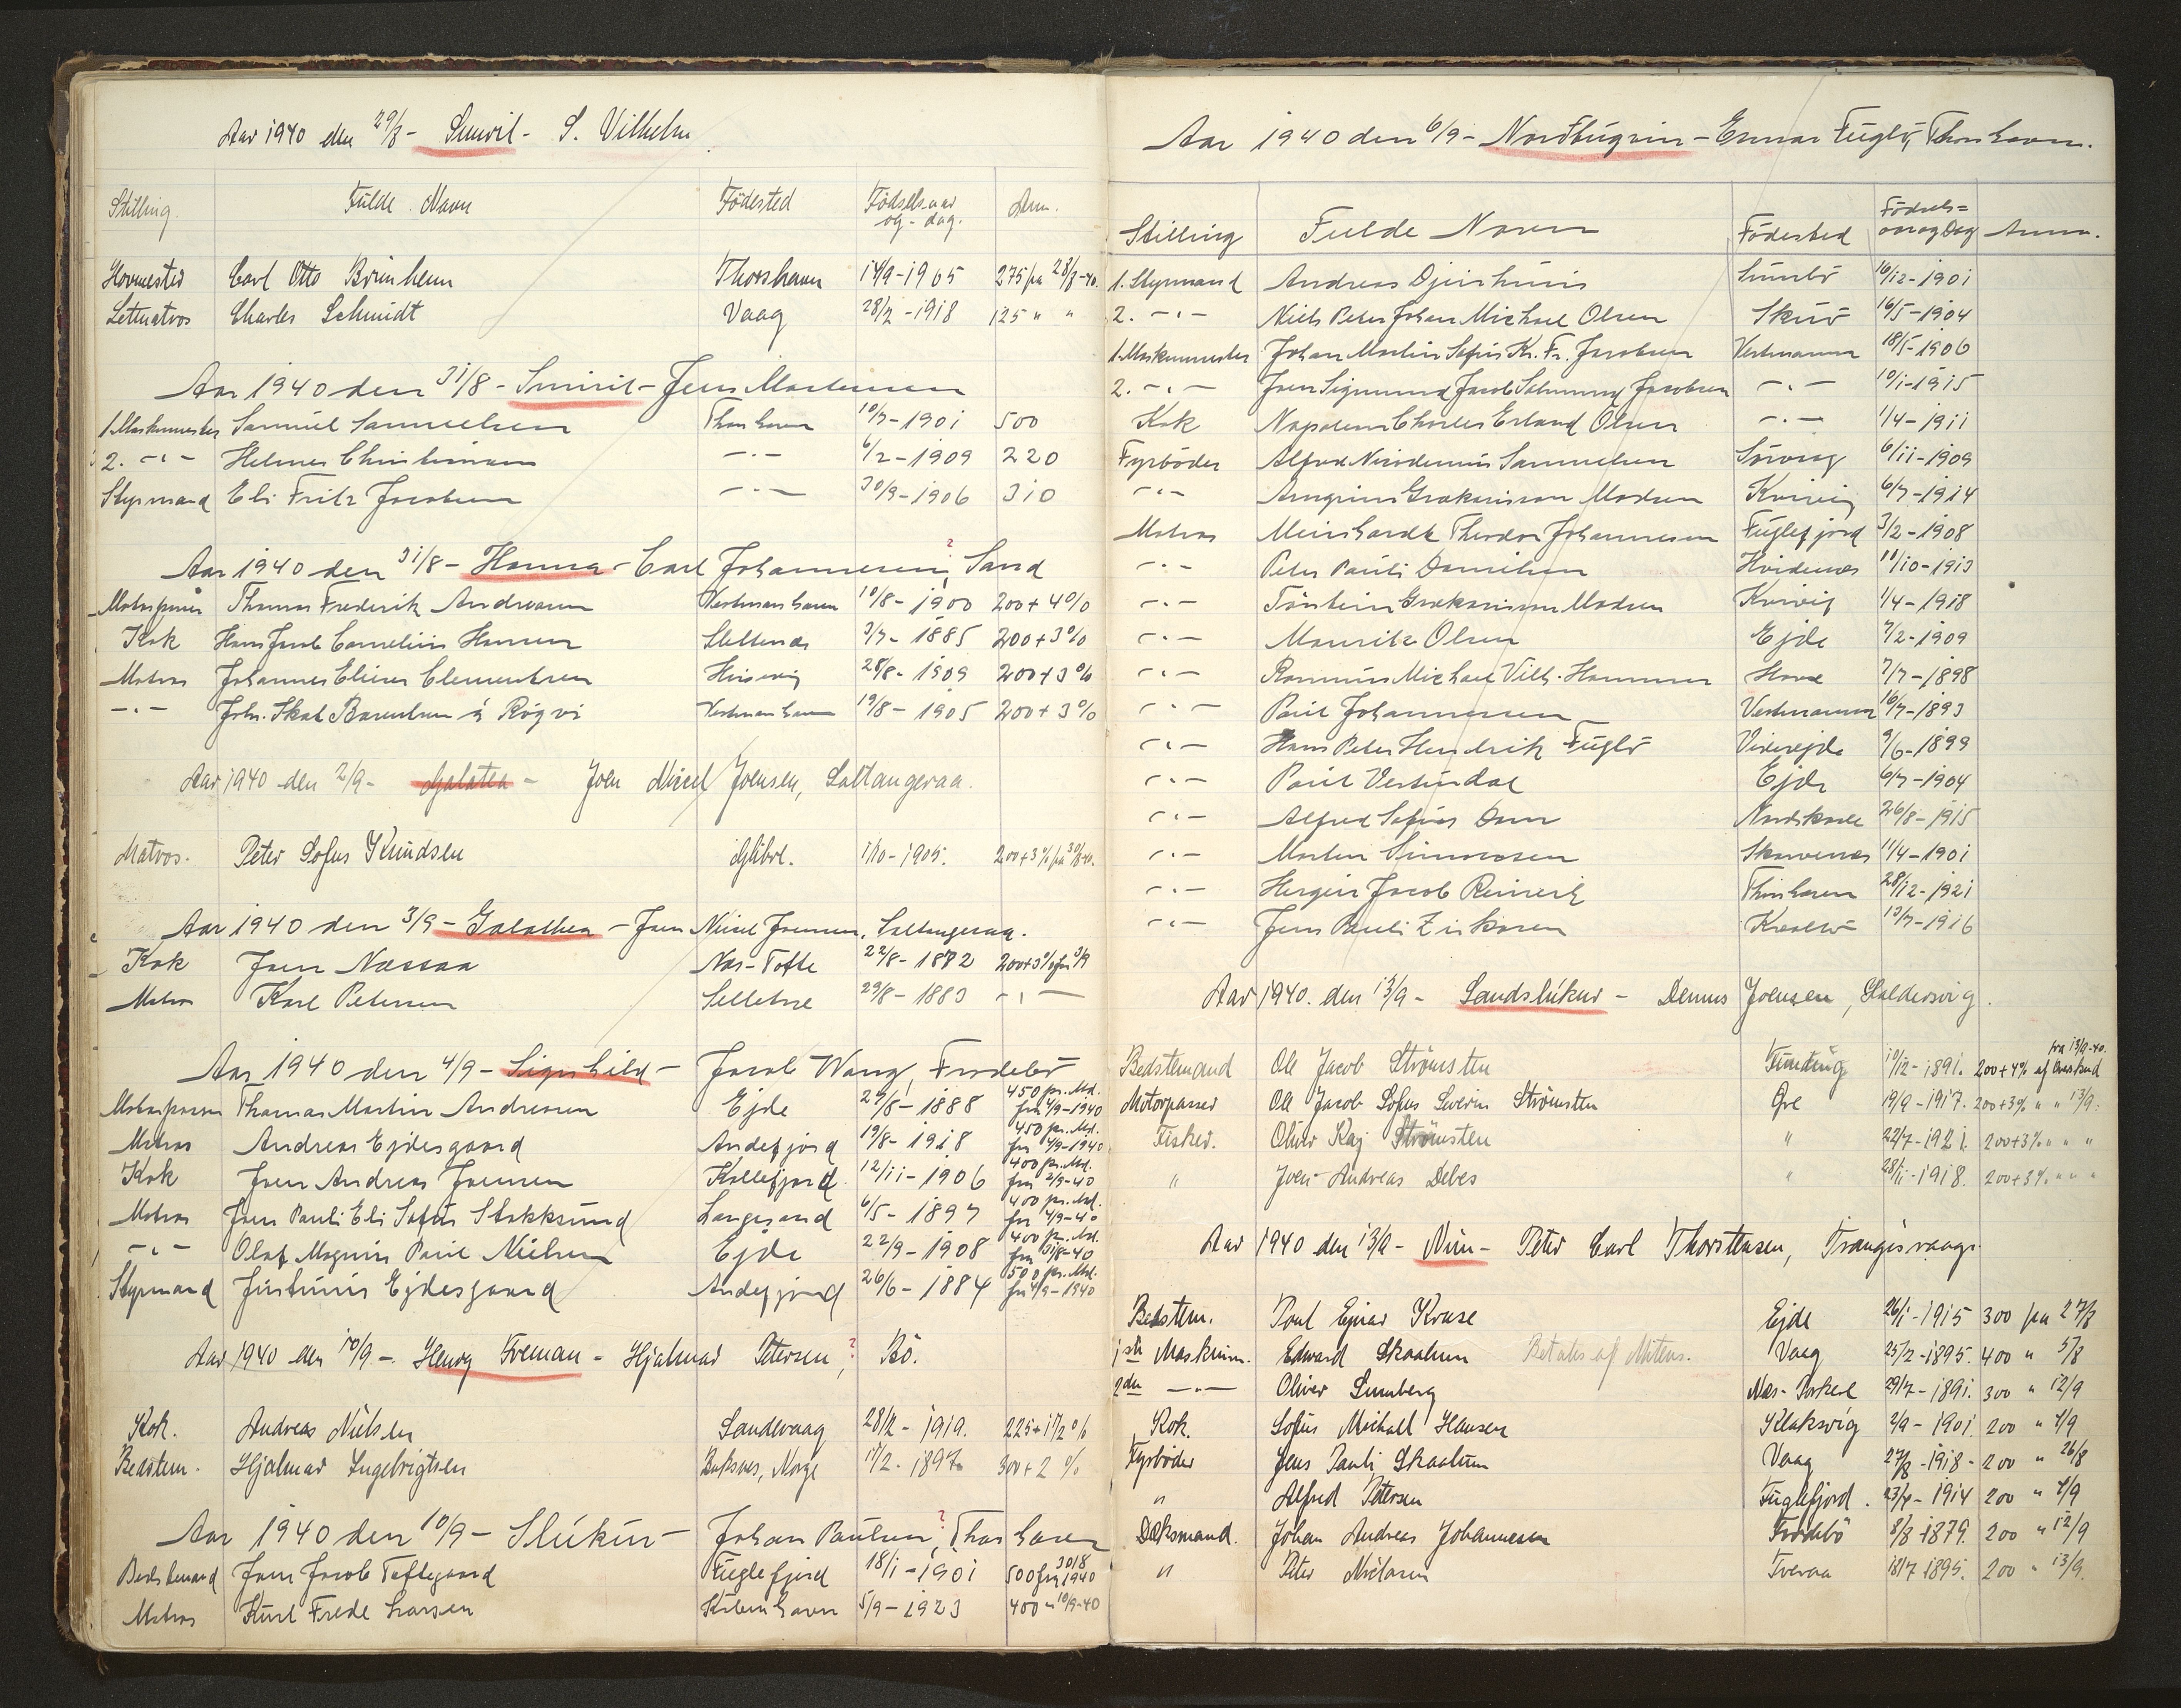 Aar 1940 den 29/8 - Smiril - S. Vilhelm
Stilling. Fulde Navn Födested Födselsaar og - dag. Anm.
Hovmester Carl Otto Brünheim Thorshavn 14/9-1905 275 fra 28/8-40.
Letmatros Charles Schmidt Vaag 28/2-1918 125 " "
Aar 1940 den 31/8 - Smiril - Jens Mortensen
1. Maskinmester Samuel Samuelsen Thorshavn 10/7-1901 500
2. -"- Helmer Christiansen -"- 6/2-1909 220
Styrmand Eli Fritz Jacobsen -"- 30/9-1906 310
Aar 1940 den 31/8 - Hanna - Carl Johannesen, ? Sand
Motorpasser Thomas Frederik Andreasen Vestmanhavn 10/8-1900 200+4%
Kok Hans Jacob Cornelius Hansen Slettenæs 3/7-1885 200+3%
Matros Johannes Elieser Clementsen Hvisevig 28/8-1909 200+3%
-"- Johs. Skal Berentsen á Rógvi Vestmanhavn 19/8-1905 200+3%
Aar 1940 den 2/9 - Galatea - Joen Misel Joensen, Saltangeraa.
Matros. Peter Sofus Knudsen Glibre. 1/10-1905. 200+3% fra 30/8-40.
Aar 1940 den 3/9 - Galathea - Joen Misel Joensen, Saltangeraa.
Kok Joen Næssaa Næs-Tofte 22/8-1872 200+3% fra 3/9
Matros Karl Petersen Selletræ 29/8-1883 -"-
Aar 1940 den 4/9 - Signhild - Jacob Wang, Frodebö
Motorpasser Thomas Martin Andreasen Ejde 29/8-1888 450 pr. Md. fra 4/9-1940
Matros Andreas Ejdesgaard Andefjord 19/8-1918 450 pr. Md. fra 4/9-1940
Kok Joen Andreas Joensen Kollefjord 12/11-1906 400 pr. Md. fra 2/9-40
Matros Joen Pauli Eli Sofus Stokksund Langesand 6/5-1897 400 pr. Md. fra 4/9-40
-"- Olaf Magnus Paul Nielsen Ejde 22/9-1908 400 pr. Md. fra 31/8-40
Styrmand Justinus Ejdesgaard Andefjord 26/6-1884 500 pr. Md. fra 4/9-1940
Aar 1940 den 10/9 - Henry Freman - Hjalmar Petersen, ? Bö.
Kok. Andreas Nielsen Sandevaag 28/2-1919. 225+1 1/2 %
Bedstem. Hjalmar Ingebrigtsen Buksnes, Norge 17/2-1897 300+2 %
Aar 1940 den 10/9 - Slúkur - Johan Paulsen, ? Thorshavn
Bedstemand Joen Jacob Toftegaard Fuglefjord 18/1-1901 500 fra 30/8 1940
Matros Kurt Frede Larsen Köbenhavn 5/9-1923 400 " 10/9-40
Aar 1940 den 6/9 - Nordbugvin - Ennar Fuglö, Thorshavn.
Stilling Fulde Navn Födested Födsels= aar og Dag Anm.
1. Styrmand Andreas Djurhuus Sumbö 16/12-1901
2. -"- Niels Peter Johan Michael Olsen Skuö 16/5-1904
1. Maskinmester Johan Martin Sofus Kr. Fr. Jacobsen Vestmanna 18/5-1906
2. -"- Joen Sigmund Jacob Salmund Jacobsen -"- 10/1-1915
Kok Napoleon Charles Erland Olsen -"- 1/4-1911
Fyrböder Alfred Nicodemus Samuelsen Sörvaag 6/11-1909
-"- Arngrim Grækarisson Madsen Kvivig 6/7-1914
Matros Meinhardt Theodor Johannesen Fuglefjord 3/2-1908
-"- Peter Pauli Danielsen Hvidenæs 11/10-1913
-"- Tórstein Grækarisson Madsen Kvivig 1/4-1918
-"- Mouritz Olsen Ejde 7/2-1909
-"- Rasmus Michael Vilh. Hammer Hove 7/7-1898
-"- Paul Johannesen Vestmanna 16/7-1893
-"- Hans Peter Hendrik Fuglö Viderejde 9/6-1899
-"- Paul Vesturdal Ejde 6/7-1904
-"- Alfred Sofus Dam Nordskaale 26/8-1915
-"- Morten Simonsen Skaavenæs 11/4-1901
-"- Hergeir Jacob Reinert Thorshavn 28/12-1921
-"- Jens Pauli Ziskasen Kvalvö 13/7-1916
Aar 1940. den 13/9 - Sandslúkur - Demus Joensen, Saldersvig.
Bedstemand Ole Jacob Strömsten Funding 10/12-1891. 200+4% af Overskud fra 13/9-40.
Motorpasser Ole Jacob Sofus Severin Strömsten Gve 19/9-1917. 200+3% " " 13/9.
Fisker. Oliver Kaj Strömsten " 22/7-1921. 200+3% " " "
" Joen Andreas Debes " 28/11-1918. 200+3% " " "
Aar 1940 den 13/9 - Nun - Peter Carl Thorstensen, Trangisvaag.
Bedstem. Poul Ejnar Kruse Ejde 26/1-1915 300 fra 27/8
1ste Maskinm. Edward Skaalum Betales af Mitens. Vaag 25/2-1895. 400 " 5/8
2den -"- Oliver Sumberg Næs-Porkere 29/7-1891. 300 " 12/9
Kok. Sofus Michall Hansen Klaksvig 2/9-1901. 200 " 4/9
Fyrböder Jens Pauli Skaalum Vaag 27/8-1918- 200 " 26/8
" Alfred Petersen Fuglefjord. 23/4-1914 200 " 4/9
Dæksmand. Johan Andreas Johannesen Frodebö 8/8-1879. 200 " 12/9
" Peter Nielasen Tveraa 18/7 1895. 200 " 13/9.